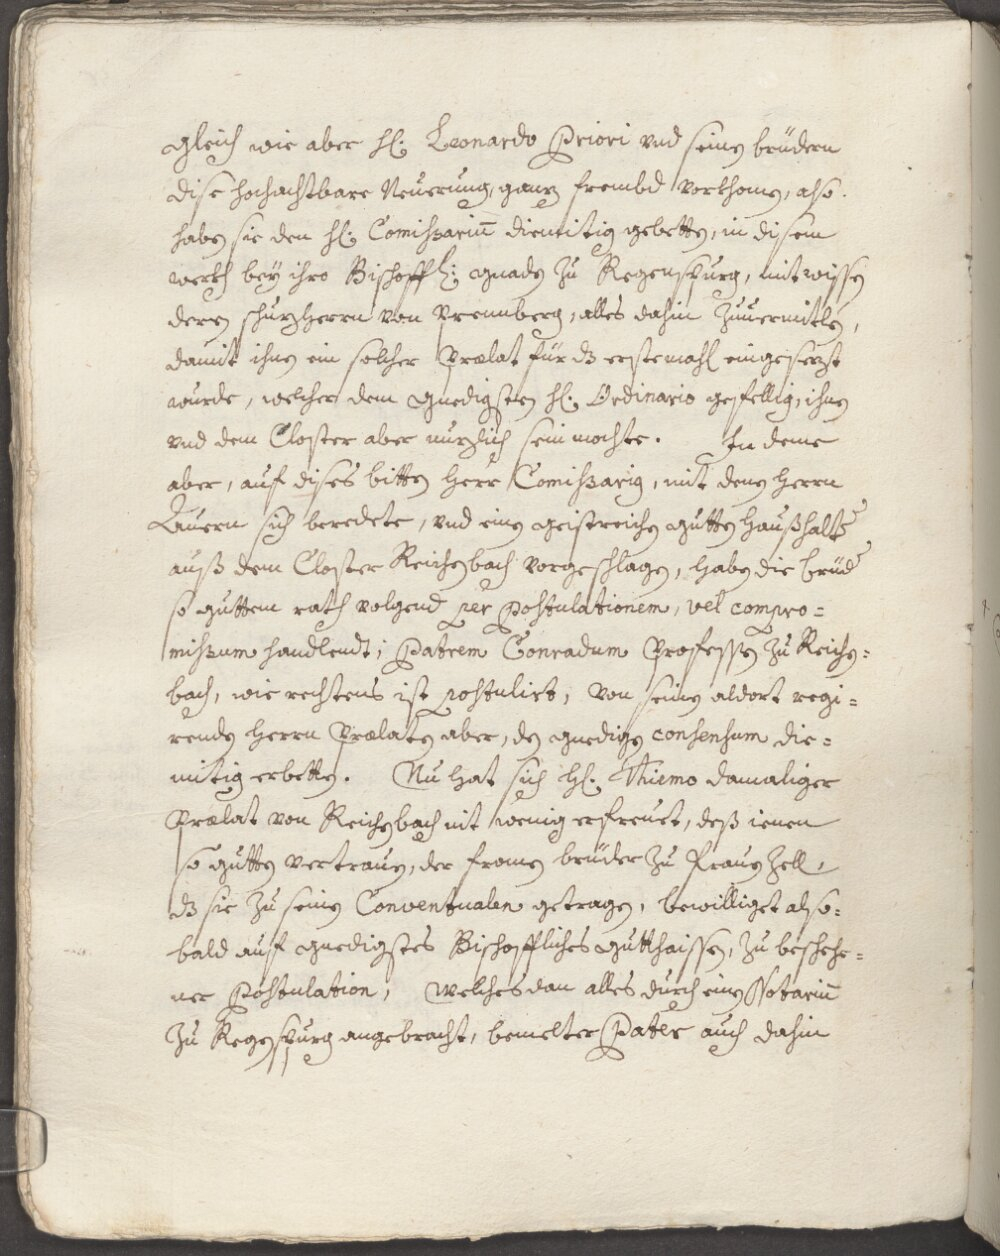 gleich wie aber H: Leonardo Priori vnd seinen brüdern
dise hochachtbare Neuerung, gantz frembd vorkhomen, also
haben sie den H: Comißarium diemitig gebetten, in disem
werkh bey ihro Bischoffl: gnaden zu Regenspurg, mit wissen
deren schuzherrn von Prennberg, alles dahin zuuermitlen,
damit ihnen ein solcher Prælat für dz erstemahl eingesezt
wurde, welcher dem gnedigsten H: Ordinario gefellig, ihnen
vnd dem Closter aber nuzlich sein mochte. In deme
aber, auf dises bitten Herr Comißarius, mit denen Herrn
Lauern sich beredete, vnd einen geistreichen gutten Haußhalter
auß dem Closter Reichenbach vorgeschlagen, haben die brüder
so guttem rath volgend per Postulationem, vel compro=
mißum handlendt, Patrem Conradum Professen zu Reichen=
bach, wie rechtens ist postulirt, von seinem aldort regi=
renden Herrn Prælaten aber, den gnedigen consensum die=
mitig erbetten. Nu hat sich H: Thiemo damaliger
Prælat von Reichenbach nit wenig erfreuet, deß ienen
so gutten vertrauen, der fromen brüder zu Frauenzell,
dz sie zu seinen Conventualen getragen, bewilliget also=
bald auf gnedigstes Bischoffliches gutthaissen, zu beschehe=
ner Postulation, welches dan alles durch einen Notarium
zu Regenspurg angebracht, bemelter Pater auch dahin